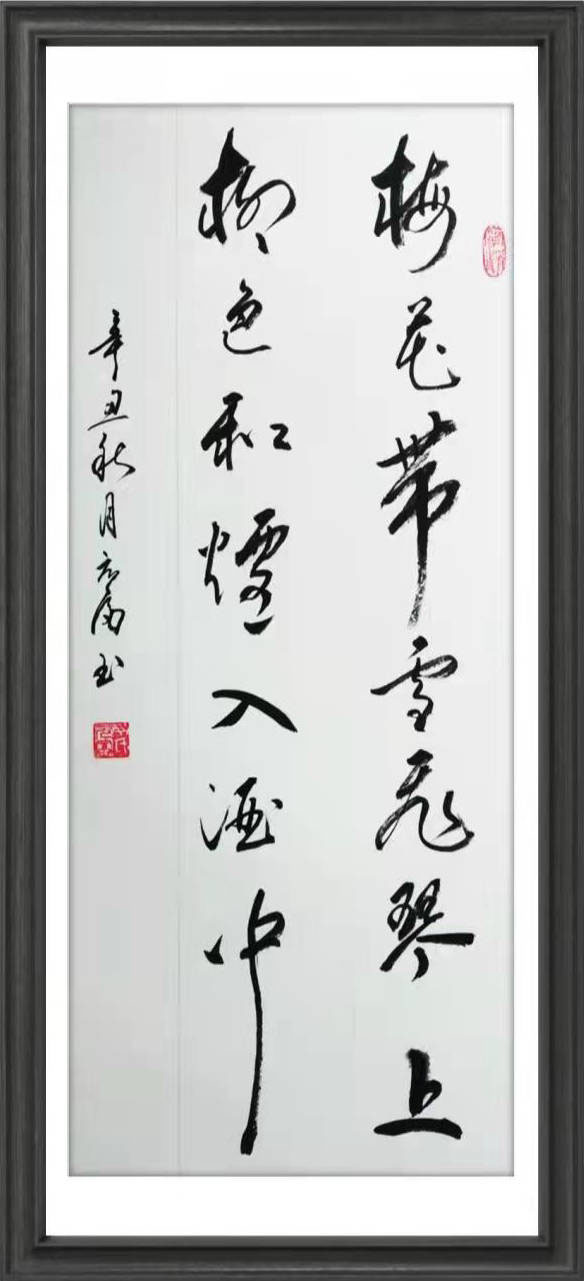 梅花带雪飞琴上
柳色和烟入酒中
辛丑秋月